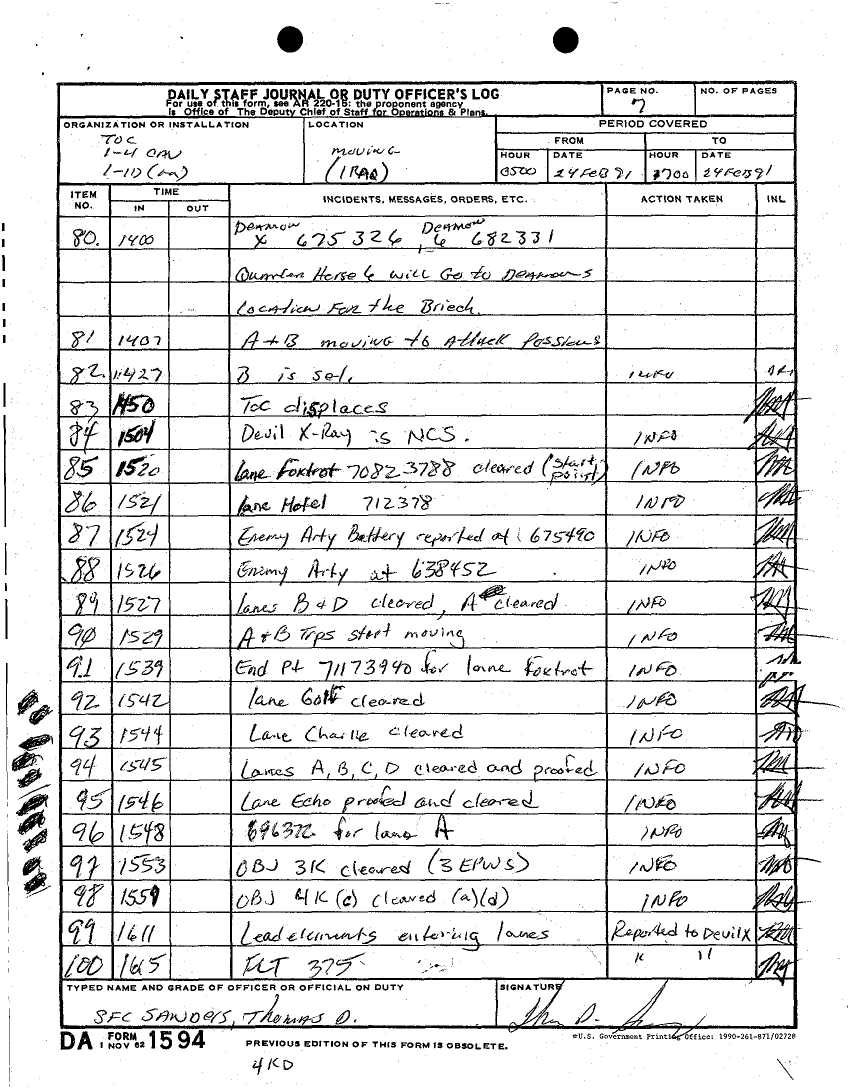 DAILY STAFF JOURNAL OR DUTY OFFICER'S LOG
For use of this form, see AR 220-15: the proponent agency
is Office of The Deputy Chief of Staff for Operations & Plans.
PAGE NO.
7
NO. OF PAGES
ORGANIZATION OR INSTALLATION
TOC
1-4 CAV
1-ID (m)
LOCATION
MOVING
(IRAQ)
PERIOD COVERED
FROM
TO
HOUR
0500
DATE
24 FEB 91
HOUR
1700
DATE
24 FEB 91
ITEM NO.
TIME
IN
OUT
INCIDENTS, MESSAGES, ORDERS, ETC.
ACTION TAKEN
INL
80. 1400 DEAMON X 675326, DEAMON 6 682331
Quarter Horse 6 will Go to DEAMONS
Location For the Briech.
81 1407 A+B moving to Attack Possions
82. 1427 B is set. INFO
83 1450 TOC displaces
84 1504 Devil X-Ray is NCS. INFO
85 1520 Lane Foxtrot 70823788 cleared (start point) INFO
86 1521 lane Hotel 712378 INFO
87 1524 Enemy Arty Battery reported at 675490 INFO
88 1526 Enemy Arty at 638452 INFO
89 1527 lanes B & D cleared, A cleared INFO
90 1529 A & B Trps start moving INFO
91 1539 End Pt 71173940 for lane foxtrot INFO
92 1542 lane Golf cleared INFO
93 1544 Lane Charlie cleared INFO
94 1545 Lanes A, B, C, D cleared and proofed INFO
95 1546 Lane Echo proofed and cleared INFO
96 1548 696372 for lane A INFO
97 1553 OBJ 3K cleared (3 EPWS) INFO
98 1559 OBJ 4K (c) cleared (a)(d) INFO
99 1611 Lead elements entering lanes Reported to Devil X
100 1615 FLT 375 " "
TYPED NAME AND GRADE OF OFFICER OR OFFICIAL ON DUTY
SFC SANDERS, Thomas D.
SIGNATURE
DA FORM 1 NOV 62 1594
PREVIOUS EDITION OF THIS FORM IS OBSOLETE.
☆U.S. Government Printing Office: 1990-261-871/02728
4KD